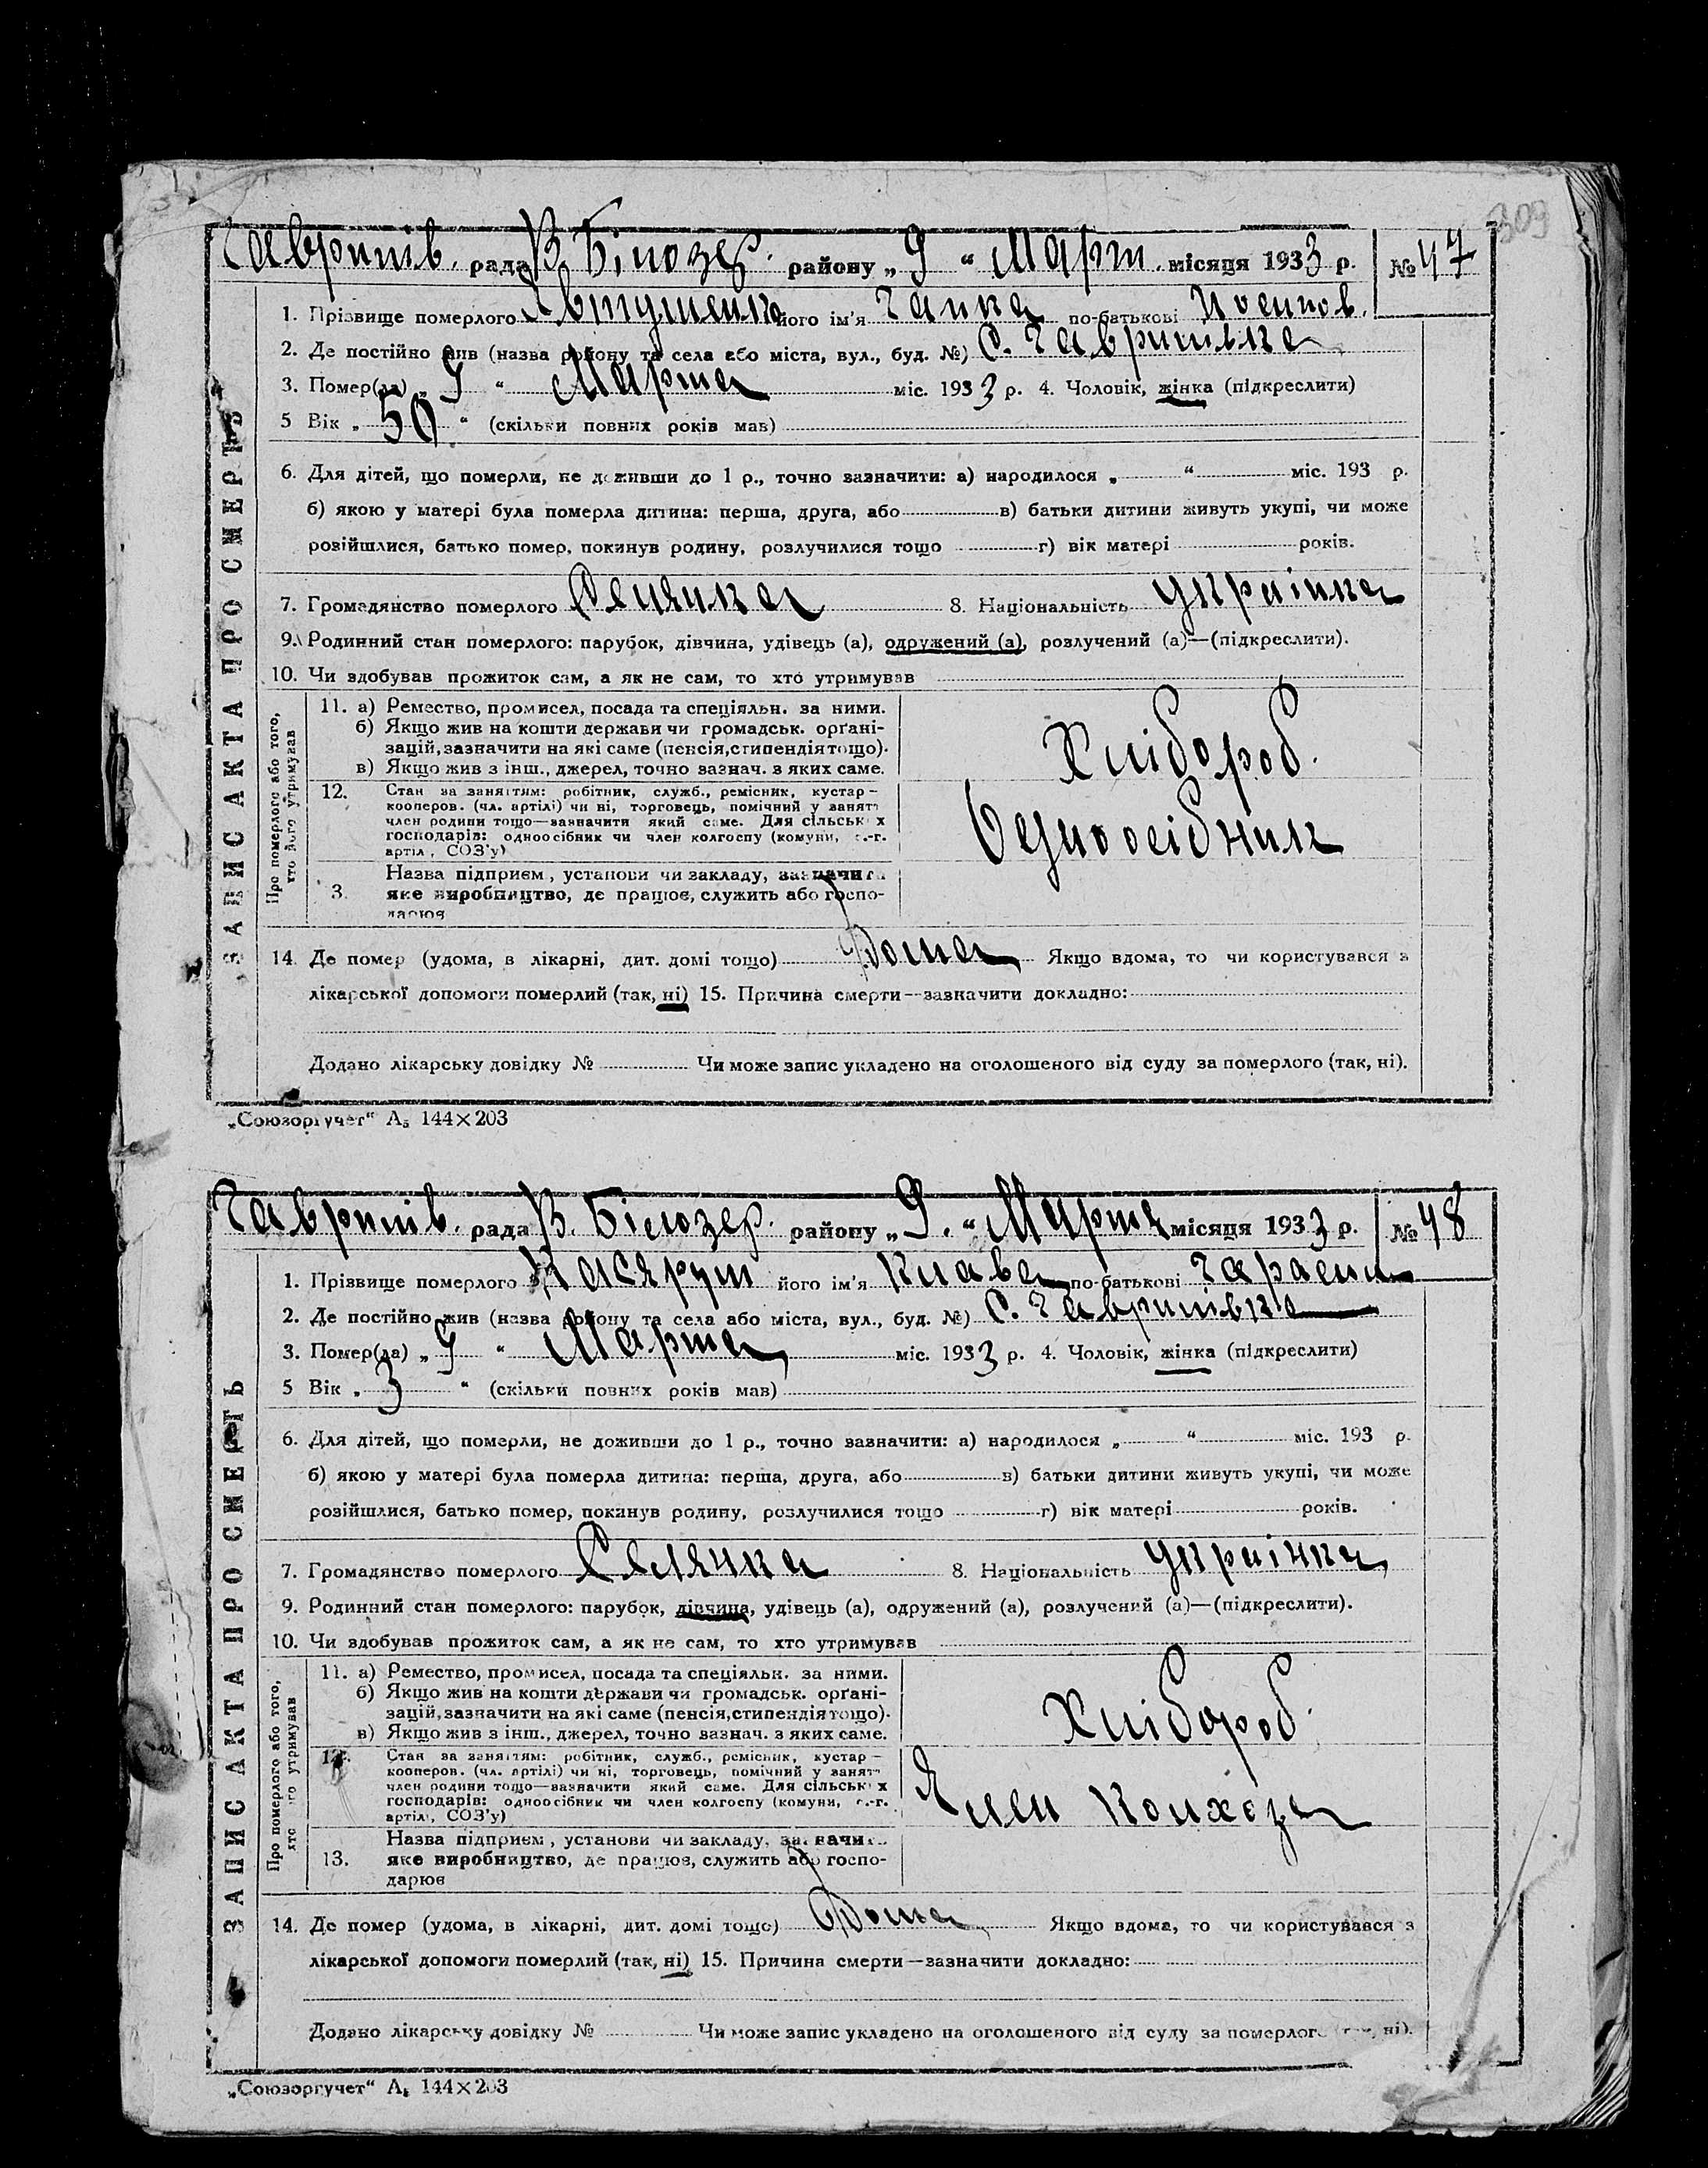 309
Гавришів. рада В. Білозер. району „ 9 “ Март. місяця 1933 р. № 47
ЗАПИС АКТА ПРО СМЕРТЬ
1. Прізвище померлого Явтушенко його ім'я Ганна по-батькові Иосипов.
2. Де постійно жив (назва району та села або міста, вул., буд. №) С. Гавришівка
3. Помер(ла) „ 9 “ Марта міс. 1933 р. 4. Чоловік, жінка (підкреслити)
5 Вік „ 50 “ (скільки повних років мав)
6. Для дітей, що померли, не доживши до 1 р., точно зазначити: а) народилося „ “ міс. 193 р.
б) якою у матері була померла дитина: перша, друга, або в) батьки дитини живуть укупі, чи може
розійшлися, батько помер, покинув родину, розлучилися тощо г) вік матері років.
7. Громадянство померлого Селянка 8. Національність Українка
9. Родинний стан померлого: парубок, дівчина, удівець (а), одружений (а), розлучений (а)—(підкреслити).
10. Чи здобував прожиток сам, а як не сам, то хто утримував
Про померлого або того, хто його утримував
11. а) Ремество, промисел, посада та спеціяльн. за ними.
б) Якщо жив на кошти держави чи громадськ. орґані-
зацій, зазначити на які саме (пенсія, стипендія тощо).
в) Якщо жив з інш., джерел, точно зазнач. з яких саме.
Хлібороб.
12. Стан за заняттям: робітник, служб., ремісник, кустар—
кооперов. (чл. артілі) чи ні, торговець, помічний у занятт
член родини тощо—зазначити який саме. Для сільськ х
господарів: одноосібник чи член колгоспу (комуни, с.-г.
артіл., СОЗ'у)
Одноосібник
3. Назва підприєм , установи чи закладу, зазначити
яке виробництво, де працює, служить або госпо-
дарює
14. Де помер (удома, в лікарні, дит. домі тощо) Дома Якщо вдома, то чи користувався з
лікарської допомоги померлий (так, ні) 15. Причина смерти—зазначити докладно:
Додано лікарську довідку № Чи може запис укладено на оголошеного від суду за померлого (так, ні).
„Союзоргучет“ А₅ 144×203
Гавришів. рада В. Білозер. району „ 9. “ Марта місяця 1933 р. № 48
ЗАПИС АКТА ПРО СМЕРТЬ
1. Прізвище померлого його ім'я Клава по-батькові
2. Де постійно жив (назва району та села або міста, вул., буд. №) С. Гавришівка
3. Помер(ла) „ 9 “ Марта міс. 1933 р. 4. Чоловік, жінка (підкреслити)
5 Вік „ 3 “ (скільки повних років мав)
6. Для дітей, що померли, не доживши до 1 р., точно зазначити: а) народилося „ “ міс. 193 р.
б) якою у матері була померла дитина: перша, друга, або в) батьки дитини живуть укупі, чи може
розійшлися, батько помер, покинув родину, розлучилися тощо г) вік матері років.
7. Громадянство померлого Селянка 8. Національність Українка
9. Родинний стан померлого: парубок, дівчина, удівець (а), одружений (а), розлучений (а)—(підкреслити).
10. Чи здобував прожиток сам, а як не сам, то хто утримував
Про померлого або того, хто його утримував
11. а) Ремество, промисел, посада та спеціяльн. за ними.
б) Якщо жив на кошти держави чи громадськ. орґані-
зацій, зазначити на які саме (пенсія, стипендія тощо).
в) Якщо жив з інш., джерел, точно зазнач. з яких саме.
Хлібороб.
12. Стан за заняттям: робітник, служб., ремісник, кустар—
кооперов. (чл. артілі) чи ні, торговець, помічний у занятт
член родини тощо—зазначити який саме. Для сільськ х
господарів: одноосібник чи член колгоспу (комуни, с.-г.
артіл., СОЗ'у)
Член колхоза
13. Назва підприєм , установи чи закладу, зазначити
яке виробництво, де працює, служить або госпо-
дарює
14. Де помер (удома, в лікарні, дит. домі тощо) Дома Якщо вдома, то чи користувався з
лікарської допомоги померлий (так, ні) 15. Причина смерти—зазначити докладно:
Додано лікарську довідку № Чи може запис укладено на оголошеного від суду за померлого (так, ні).
„Союзоргучет“ А₅ 144×203